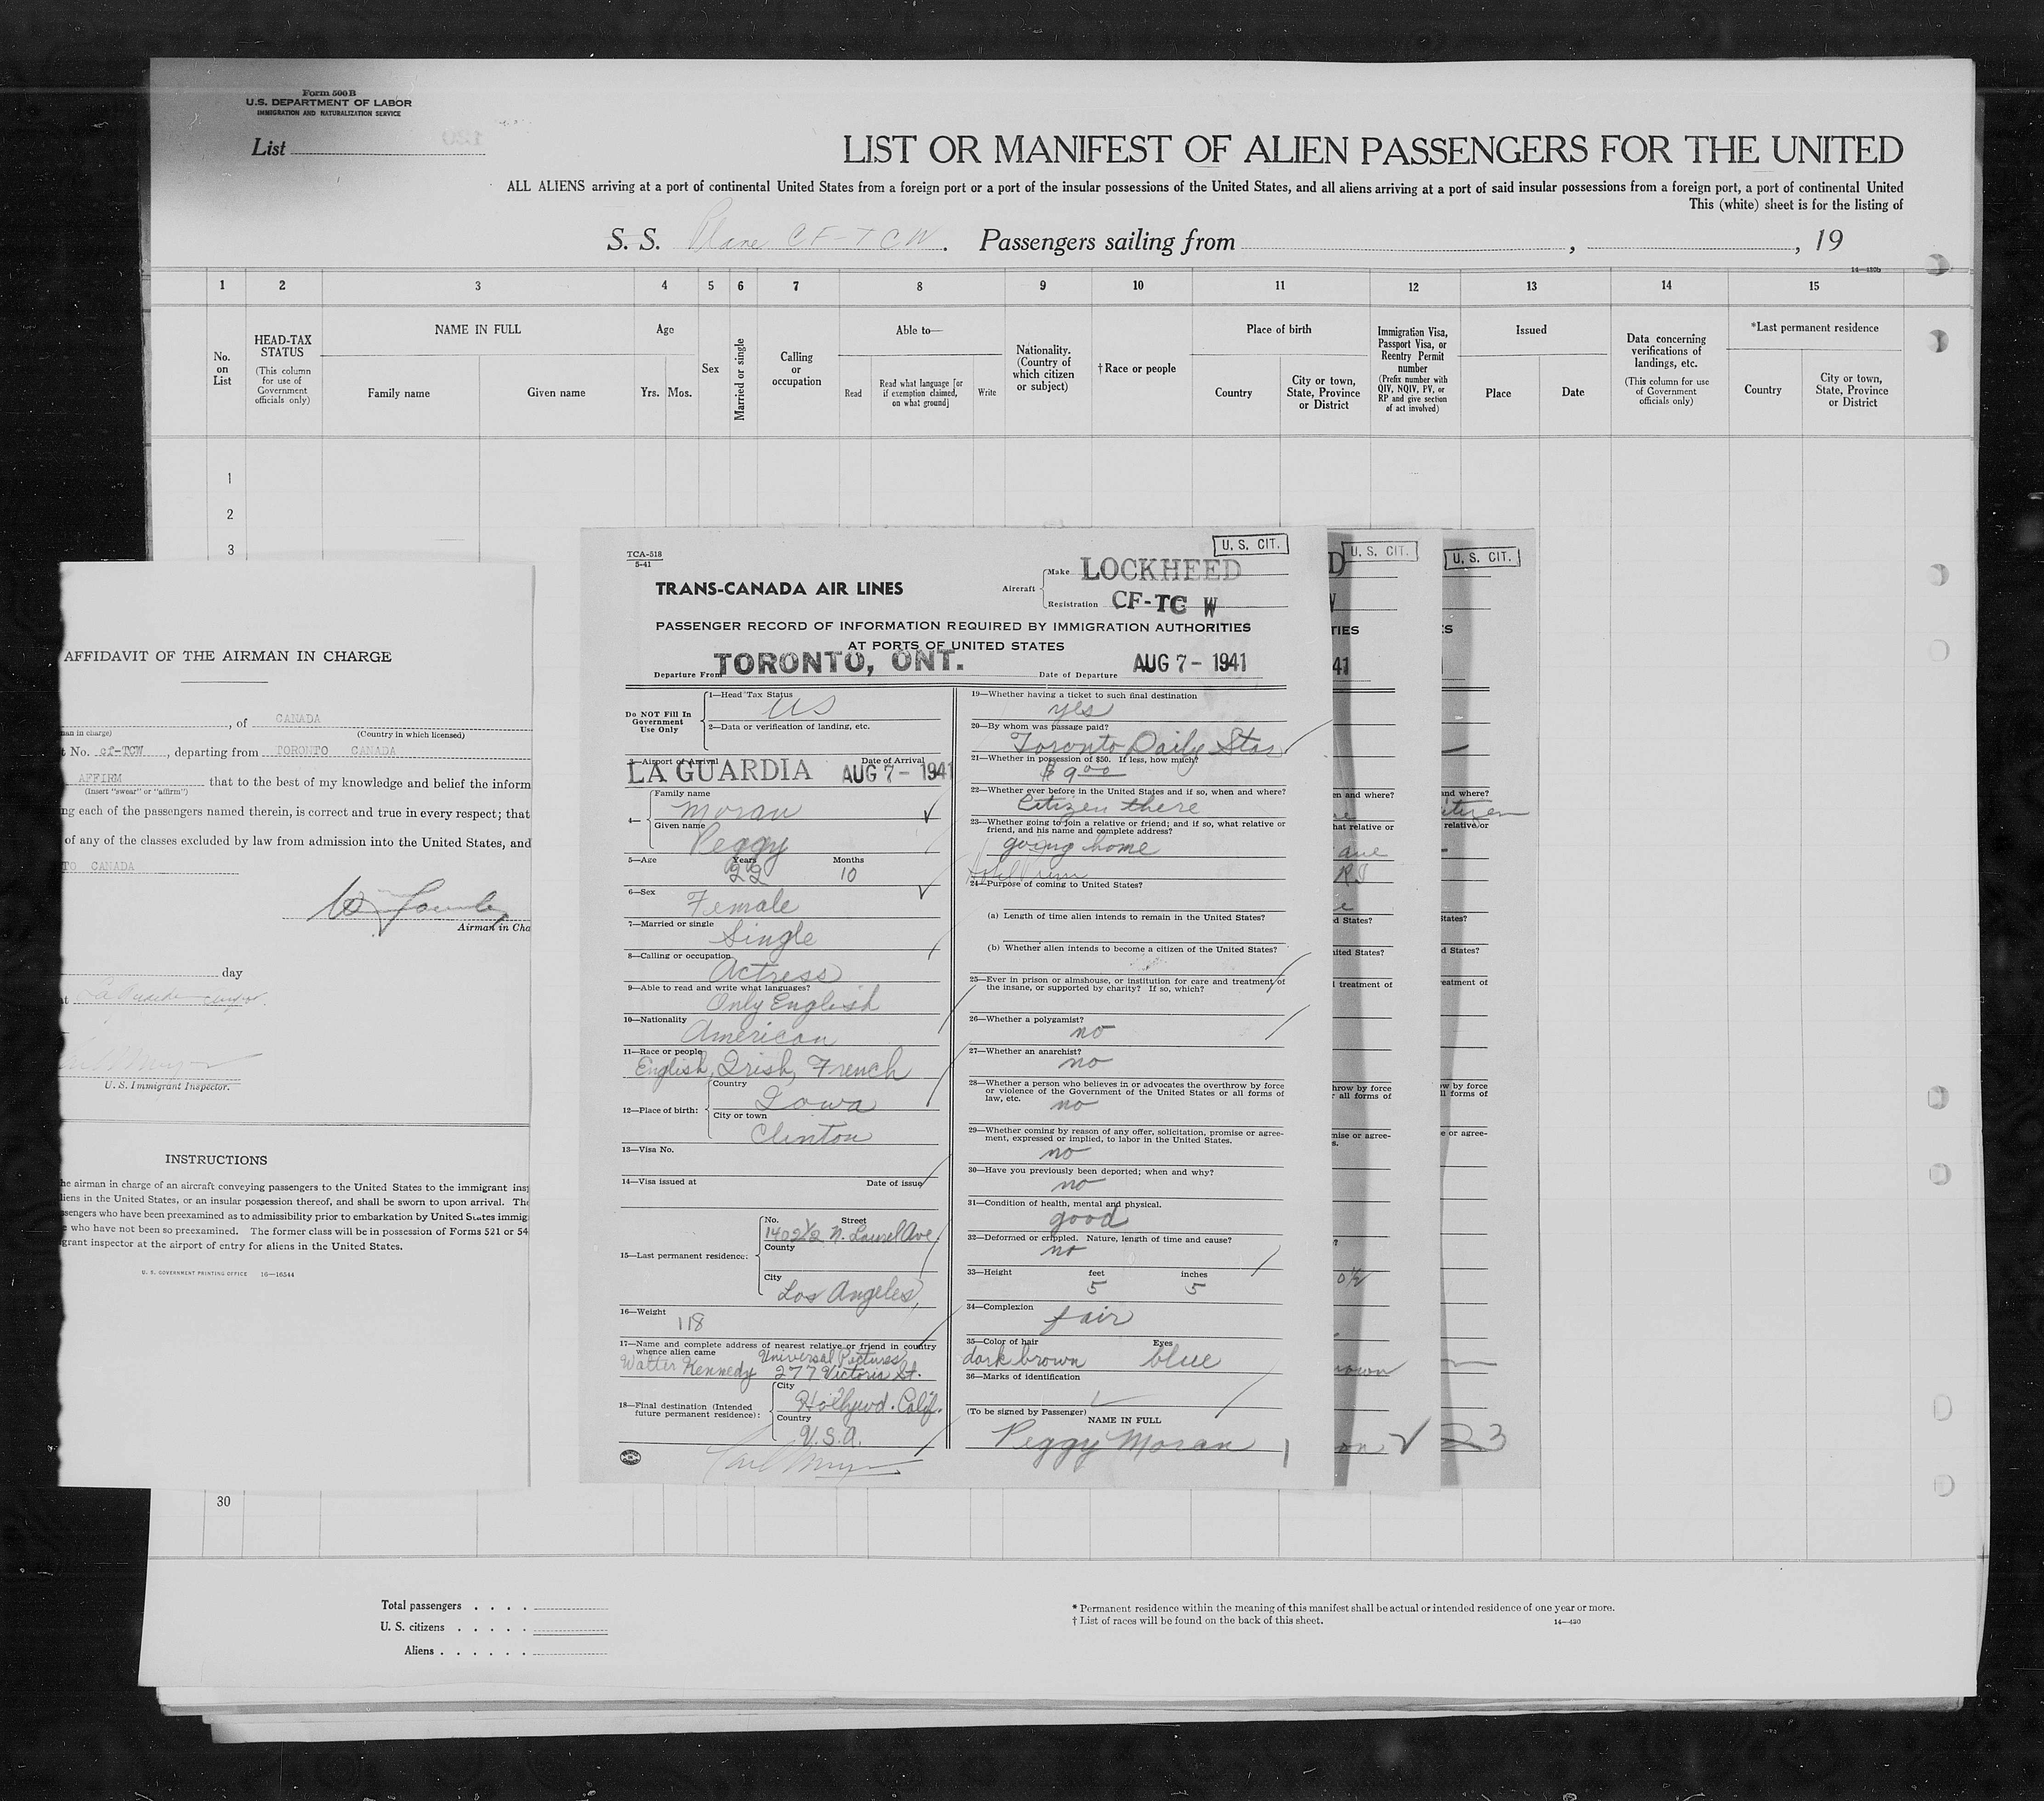 Form 500 B
U.S. DEPARTMENT OF LABOR
IMMIGRATION AND NATURALIZATION SERVICE
List
LIST OR MANIFEST OF ALIEN PASSENGERS FOR THE UNITED
ALL ALIENS arriving at a port of continental United States from a foreign port or a port of the insular possessions of the United States, and all aliens arriving at a port of said insular possessions from a foreign port, a port of continental United
This (white) sheet is for the listing of
S. S. Plane CF-TCW. Passengers sailing from , , 19
14—430b
1 2 3 4 5 6 7 8 9 10 11 12 13 14 15
No. on List
HEAD-TAX STATUS
(This column for use of Government officials only)
NAME IN FULL
Family name Given name
Age
Yrs. Mos.
Sex
Married or single
Calling or occupation
Able to—
Read Read what language [or if exemption claimed, on what ground] Write
Nationality. (Country of which citizen or subject)
†Race or people
Place of birth
Country City or town, State, Province or District
Immigration Visa, Passport Visa, or Reentry Permit number
(Prefix number with QIV, NQIV, PV, or RP and give section of act involved)
Issued
Place Date
Data concerning verifications of landings, etc.
(This column for use of Government officials only)
*Last permanent residence
Country City or town, State, Province or District
1
2
3
AFFIDAVIT OF THE AIRMAN IN CHARGE
, of CANADA
man in charge) (Country in which licensed)
t No. cf-TCW , departing from TORONTO CANADA
AFFIRM that to the best of my knowledge and belief the inform
(Insert "swear" or "affirm")
ng each of the passengers named therein, is correct and true in every respect; that
of any of the classes excluded by law from admission into the United States, and
TO CANADA
Airman in Cha
day
at
U. S. Immigrant Inspector.
INSTRUCTIONS
he airman in charge of an aircraft conveying passengers to the United States to the immigrant insp
liens in the United States, or an insular possession thereof, and shall be sworn to upon arrival. The
ssengers who have been preexamined as to admissibility prior to embarkation by United States immig
e who have not been so preexamined. The former class will be in possession of Forms 521 or 54
grant inspector at the airport of entry for aliens in the United States.
U. S. GOVERNMENT PRINTING OFFICE 16—16544
TCA-518
5-41
U. S. CIT.
TRANS-CANADA AIR LINES
Aircraft Make LOCKHEED
Registration CF-TC W
PASSENGER RECORD OF INFORMATION REQUIRED BY IMMIGRATION AUTHORITIES
AT PORTS OF UNITED STATES
Departure From TORONTO, ONT. Date of Departure AUG 7 - 1941
Do NOT Fill In Government Use Only
1—Head Tax Status
US
2—Data or verification of landing, etc.
3—Airport of Arrival Date of Arrival
LA GUARDIA AUG 7 - 1941
4— Family name
Moran
Given name
Peggy
5—Age Years Months
22 10
6—Sex
Female
7—Married or single
Single
8—Calling or occupation
Actress
9—Able to read and write what languages?
Only English
10—Nationality
American
11—Race or people
English, Irish, French
12—Place of birth: Country
Iowa
City or town
Clinton
13—Visa No.
14—Visa issued at Date of issue
15—Last permanent residence: No. Street
1402½ N. Laurel Ave.
County
City
Los Angeles,
16—Weight
118
17—Name and complete address of nearest relative or friend in country
whence alien came Universal Pictures
Walter Kennedy 277 Victoria St.
18—Final destination (Intended future permanent residence): City
Hollywd. Calif.
Country
U.S.A.
19—Whether having a ticket to such final destination
yes
20—By whom was passage paid?
Toronto Daily Star
21—Whether in possession of $50. If less, how much?
$9.00
22—Whether ever before in the United States and if so, when and where?
Citizen there
23—Whether going to join a relative or friend; and if so, what relative or
friend, and his name and complete address?
going home
24—Purpose of coming to United States?
(a) Length of time alien intends to remain in the United States?
(b) Whether alien intends to become a citizen of the United States?
25—Ever in prison or almshouse, or institution for care and treatment of
the insane, or supported by charity? If so, which?
26—Whether a polygamist?
no
27—Whether an anarchist?
no
28—Whether a person who believes in or advocates the overthrow by force
or violence of the Government of the United States or all forms of
law, etc.
no
29—Whether coming by reason of any offer, solicitation, promise or agree-
ment, expressed or implied, to labor in the United States.
no
30—Have you previously been deported; when and why?
no
31—Condition of health, mental and physical.
good
32—Deformed or crippled. Nature, length of time and cause?
no
33—Height feet inches
5 5
34—Complexion
fair
35—Color of hair Eyes
dark brown blue
36—Marks of identification
(To be signed by Passenger)
NAME IN FULL
Peggy Moran 1
U. S. CIT.
U. S. CIT.
23
30
Total passengers . . . .
U. S. citizens . . . . .
Aliens . . . . . .
* Permanent residence within the meaning of this manifest shall be actual or intended residence of one year or more.
† List of races will be found on the back of this sheet.
14—430